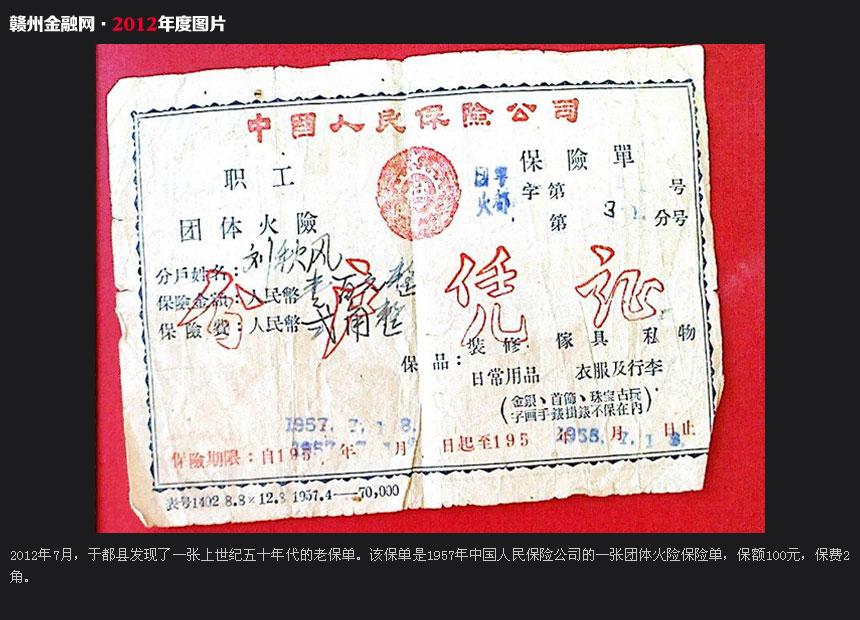 赣州金融网·2012年度图片
中國人民保險公司
职工
团体火險
保險單
字第 号
第 3 分号
分戶姓名：刘秋风
保險金額：人民幣壹百元整
保險費：人民幣弍角整
分户凭证
保 品：装修 傢具 私物
日常用品 衣服及行李
(金銀、首飾、珠宝古玩
字画手錶掛錶不保在內)
1957.7.18.
保險期限：自195 年 月 日起至195 年 月 日止
1957.7.18 1958.7.18.
表号1402 8.8×12.8 1957.4—70,000
2012年7月，于都县发现了一张上世纪五十年代的老保单。该保单是1957年中国人民保险公司的一张团体火险保险单，保额100元，保费2
角。